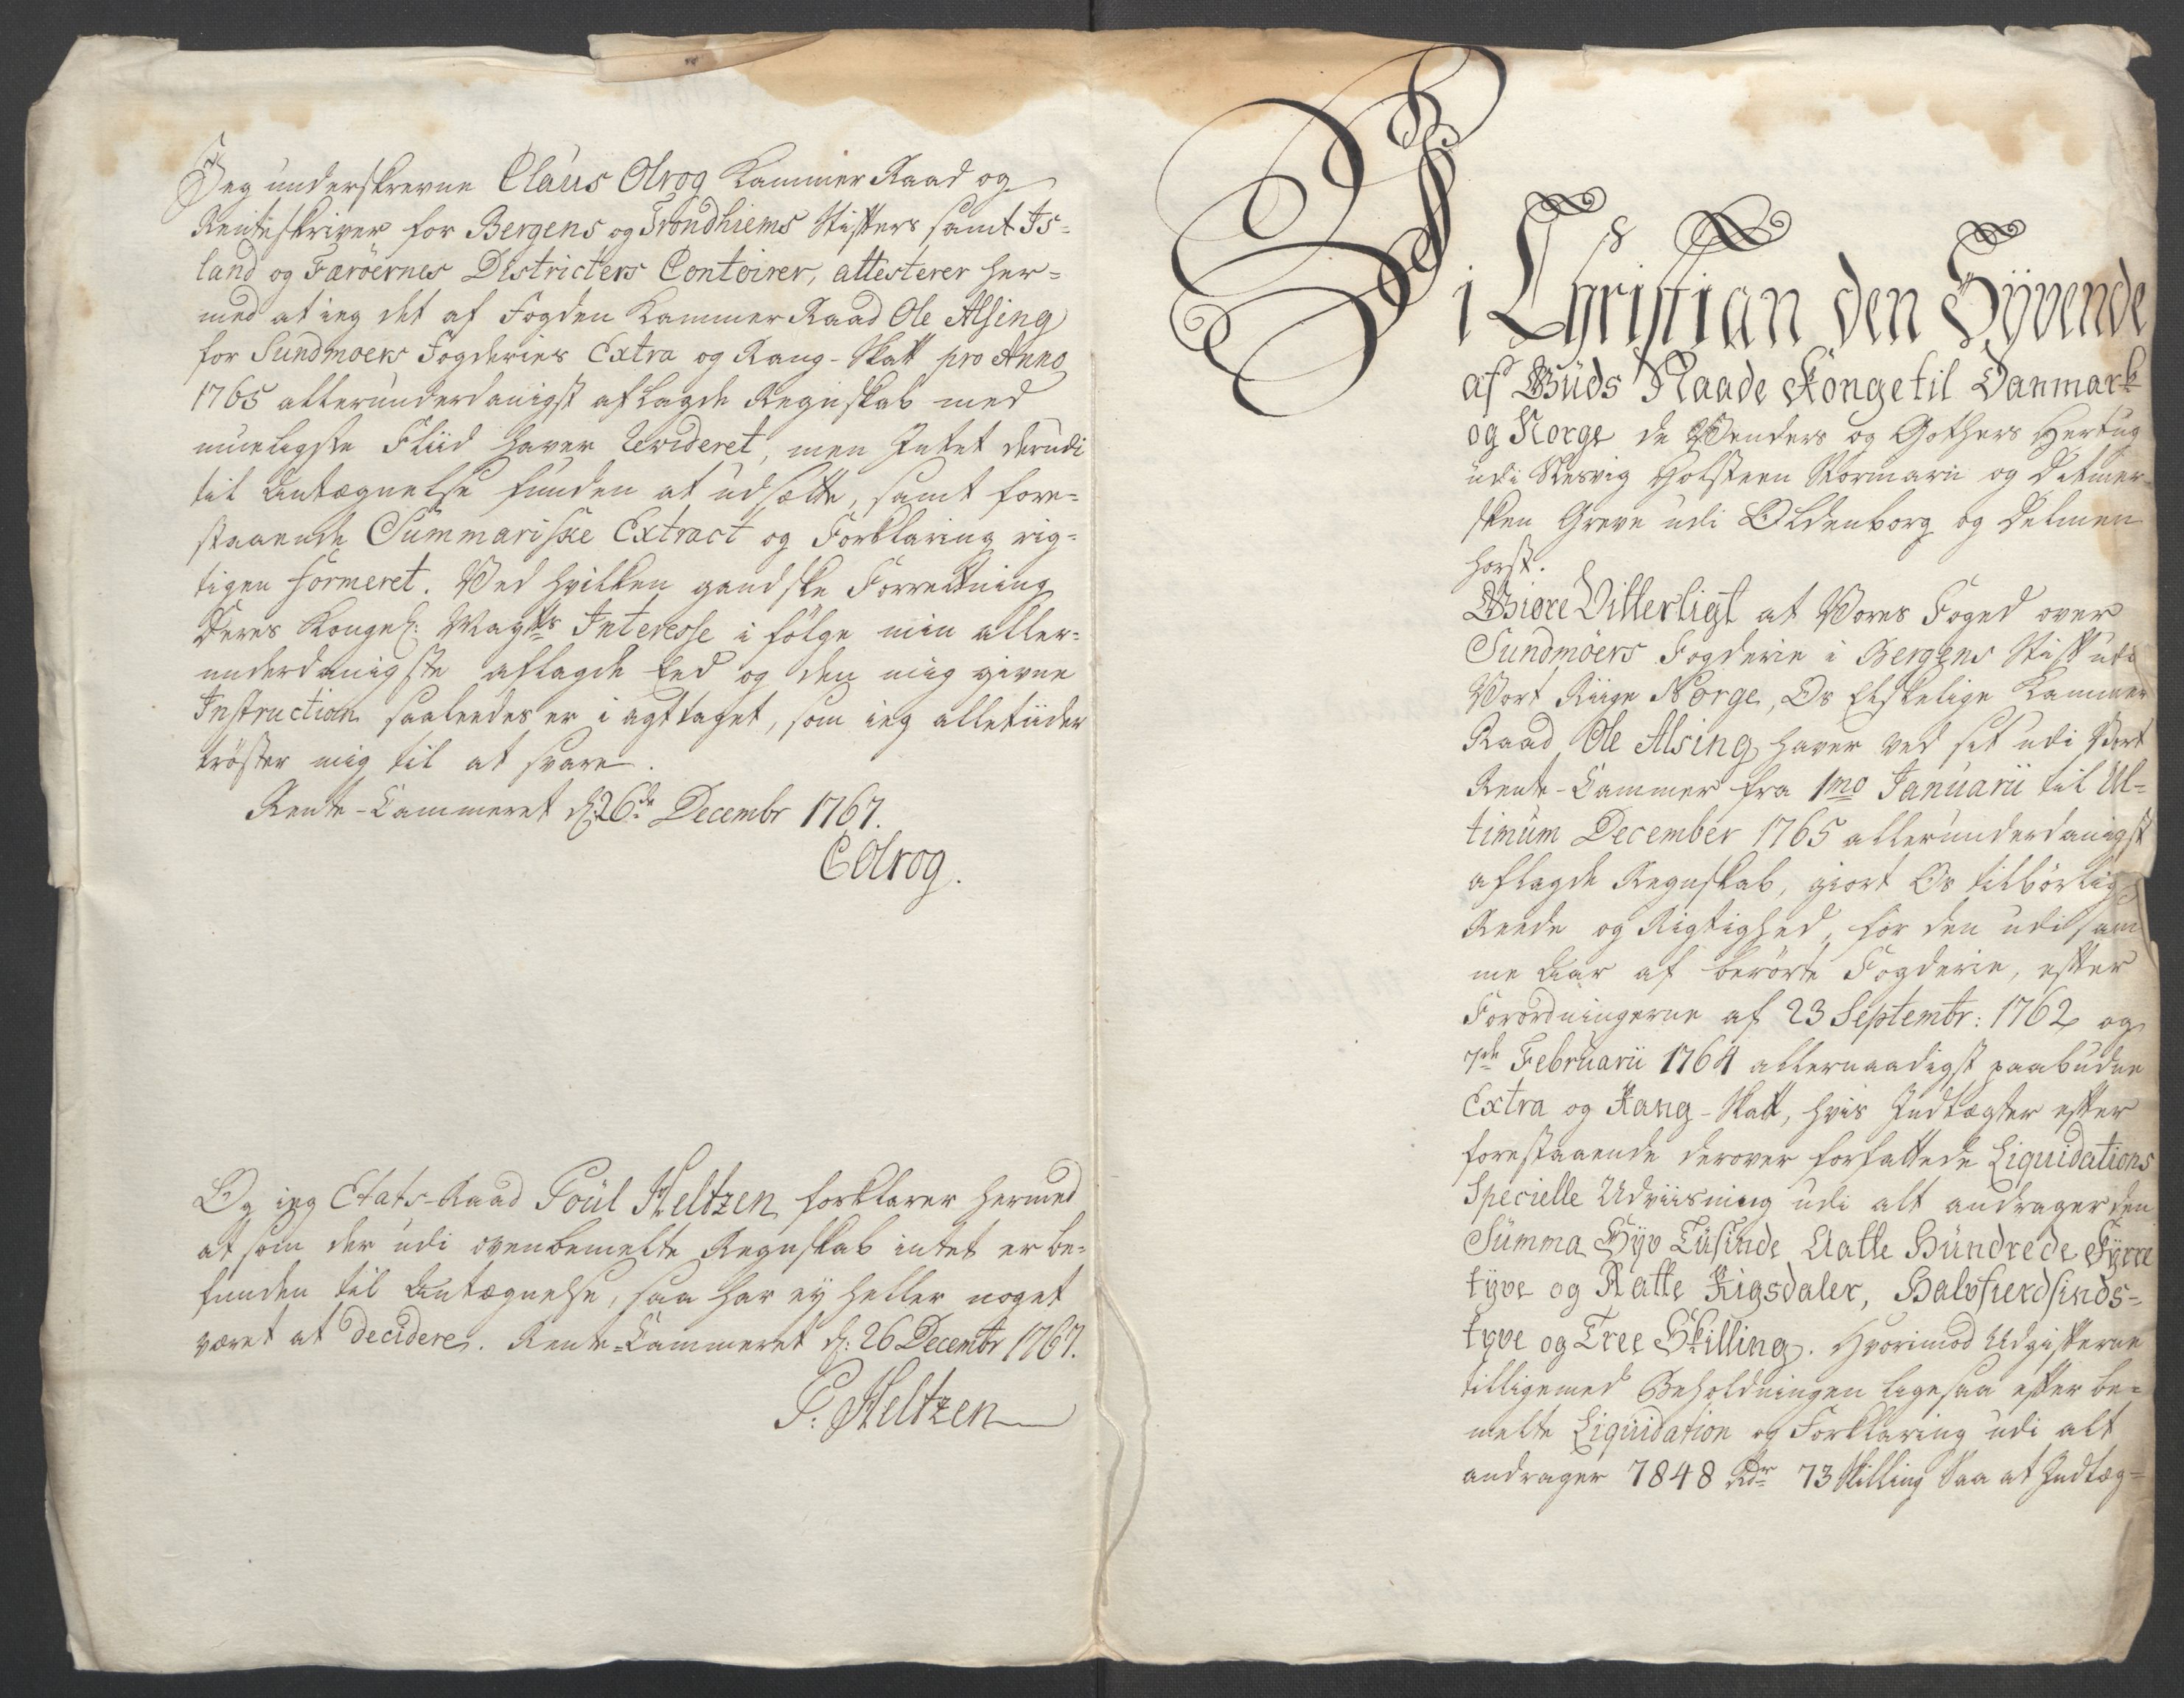 Jeg underskrevne Claus Olrog Kammer Raad og
Renteskriver for Bergens og Trondhiems Stifters samt Is-
land og Færöernes Districters Contoirer, attesterer her-
med at jeg det af Fogden Kammer Raad Ole Alsing
for Sundmoers Fogderies Extra og Rang-Skatt pro Anno
1765 allerunderdanigst aflagde Regnskab med
mueligste Fliid haver Revideret, men Intet derudi
til Antægnelse funden at udsætte, samt fore-
staaende Summariske Extract og Forklaring rig-
tigen formeret. Ved hvilken gandske Forretning
Deres Kongel: Mayts Interesse i fölge min aller-
underdanigste aflagde Eed og den mig givne
Instruction saaledes er i agttaget, som jeg alletiider
tröster mig til at svare.
Rente-Cammeret d: 26de Decembr 1767.
COlrog.
Og jeg Etats-Raad Poul Heltzen forklarer hermed
at som der udi ovenbemelte Regnskab intet er be-
funden til Antægnelse, saa har ey heller noget
været at decidere. Rente-Cammeret d: 26 Decembr 1767.
P: Heltzen
Vi Christian den Syvende
af Guds Naade Konge til Danmark
og Norge de Wenders og Gothers Hertug
udi Slesvig Holsteen Stormarn og Ditmer-
sken Greve udi Oldenborg og Delmen
horst.
Giøre Vitterligt at Vores Foged over
Sundmöers Fogderie i Bergens Stift udi
Vort Riige Norge, Os Elskelige Kammer
Raad Ole Alsing haver ved sit udi Vort
Rente-Cammer fra 1mo Januarii til Ul-
timum December 1765 allerunderdanigst
aflagde Regnskab, giort Os tilbörlig
Reede og Rigtighed, for den udi sam
me Aar af berörte Fogderie, efter
Forordningerne af 23 Septembr: 1762 og
7de Februarii 1764 allernaadigst paabudne
Extra og Rang-Skatt, hvis Indtægter efter
forestaaende derover forfattede Liquidations
Specielle Udviisning udi alt andrager den
Summa Syv Tusinde Aatte Hundrede Fyrre
tyve og Aatte Rigsdaler, Halvfierdsinds-
tyve og Tree Skilling. Hvorimod Udgifterne
tilligemed Beholdningen ligesaa efter be-
melte Liquidation og Forklaring udi alt
andrager 7848 Rdr 73 Skilling Saa at Indtæg-